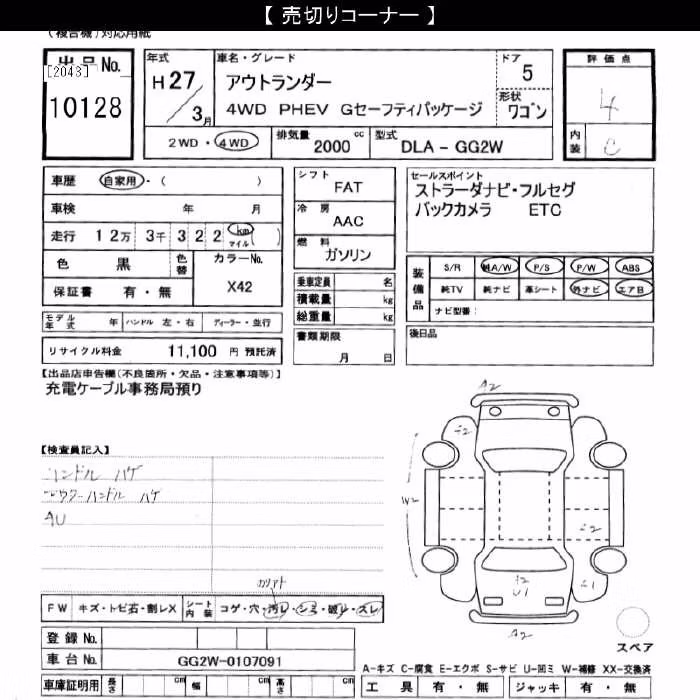 【 売切りコーナー 】
(複合機)対応用紙
出品No.
[2043]
10128
年式
H27/3月
車名・グレード
アウトランダー
4WD PHEV Gセーフティパッケージ
ドア
5
形状
ワゴン
2WD・4WD
排気量
2000 cc
型式
DLA-GG2W
評価点
4
内装
C
車歴 自家用・( )
車検 年 月
走行 12万 3千 322 km マイル( )
色 黒 色替
カラーNo.
X42
保証書 有・無
モデル年式 年 ハンドル 左・右 ディーラー・並行
リサイクル料金 11,100 円 預託済
シフト
FAT
冷房
AAC
燃料
ガソリン
乗車定員 名
積載量 kg
総重量 kg
書類期限
月 日
セールスポイント
ストラーダナビ・フルセグ
バックカメラ ETC
装備品
S/R 純A/W P/S P/W ABS
純TV 純ナビ 革シート 外ナビ エアB
ナビ型番:
後日品
【出品店申告欄(不良箇所・欠品・注意事項等)】
充電ケーブル事務局預り
【検査員記入】
ハンドル ハゲ
ハンドル ハゲ
AU
A2
W2
A2
FW キズ・トビ石・割レX
シート内装 コゲ・穴・汚レ・シミ・破レ・スレ
登録No.
車台No. GG2W-0107091
車庫証明用 長さ cm 幅 cm 高さ cm
スペア
A-キズ C-腐食 E-エクボ S-サビ U-凹ミ W-補修 XX-交換済
工具 有・無 ジャッキ 有・無